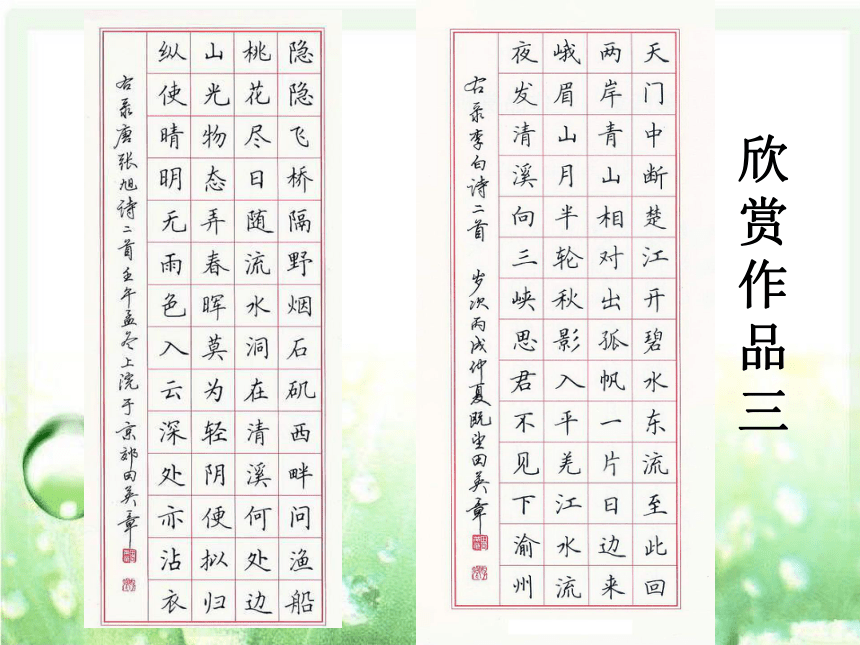 欣赏作品三
天门中断楚江开碧水东流至此回
两岸青山相对出孤帆一片日边来
峨眉山月半轮秋影入平羌江水流
夜发清溪向三峡思君不见下渝州
右录李白诗二首 岁次丙戌仲夏既望田英章
隐隐飞桥隔野烟石矶西畔问渔船
桃花尽日随流水洞在清溪何处边
山光物态弄春晖莫为轻阴便拟归
纵使晴明无雨色入云深处亦沾衣
右录唐张旭诗二首壬午孟冬上浣于京郊田英章